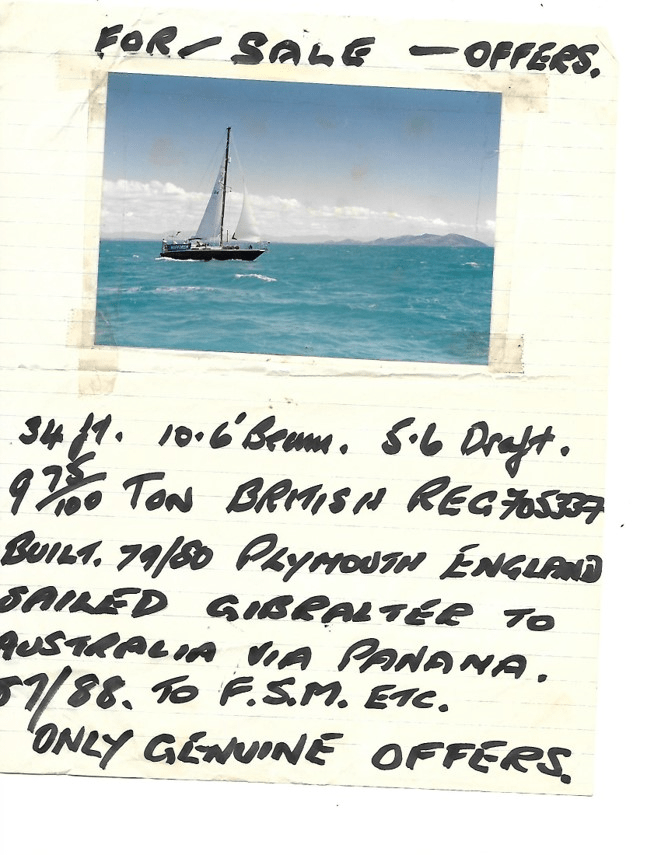 FOR - SALE - OFFERS.
34 ft. 10.6' Beam. 5.6 Draft.
9 75/100 TON BRITISH REG 705337
BUILT. 79/80 PLYMOUTH ENGLAND
SAILED GIBRALTER TO
AUSTRALIA VIA PANANA.
87/88. TO F.S.M. ETC.
ONLY GENUINE OFFERS.